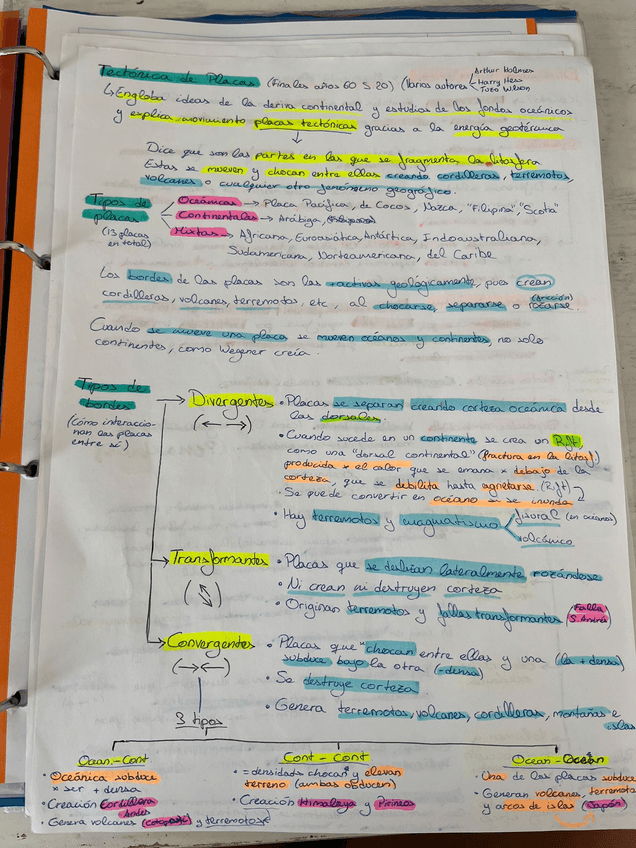 Tectónica de Placas (Finales años 60 S.20) (Varios autores
Arthur Holmes
Harry Hess
Tuzo Wilson
↳ Engloba ideas de la deriva continental y estudios de los fondos oceánicos
y explica movimiento placas tectónicas gracias a la energía geotérmica
Dice que son las partes en las que se fragmenta la litosfera
Estas se mueven y chocan entre ellas creando cordilleras, terremotos,
volcanes o cualquier otro fenómeno geográfico.
Tipos de placas (13 placas en total)
Oceánicas → Placa Pacífica, de Cocos, Nazca, "Filipina" "Scotia"
Continentales → Arábiga,
Mixtas → Africana, Euroasiática, Antártica, Indoaustraliana,
Sudamericana, Norteamericano, del Caribe
Los bordes de las placas son las +activas geológicamente, pues crean
cordilleras, volcanes, terremotos, etc, al chocarse, separarse o rozarse.
(fricción)
Cuando se mueve una placa se mueven océanos y continentes, no solo
continentes, como Wegener creía.
Tipos de bordes
(cómo interaccionan las placas entre sí)
Divergentes
(← →)
• Placas se separan creando corteza oceánica desde
las dorsales.
• Cuando sucede en un continente se crea un Rift
como una "dorsal continental" (fractura en la litosf)
producida x el calor que se emana x debajo de la
corteza, que se debilita hasta agrietarse (Rift)
• Se puede convertir en océano si se inunda
• Hay terremotos y magmatismo
fisural (en océanos)
volcánico
Transformantes
• Placas que se deslizan lateralmente rozándose
• Ni crean ni destruyen corteza
• Originan terremotos y fallas transformantes (Falla S. Andrés)
Convergentes
(→←)
• Placas que chocan entre ellas y una (la + densa)
subduce bajo la otra (-densa)
• Se destruye corteza
• Genera terremotos, volcanes, cordilleras, montañas e
islas
3 tipos
Ocean-Cont
• Oceánica subduce
x ser + densa
• Creación Cordillera
Andes
• Genera volcanes (Cotopaxi) y terremotos
Cont-Cont
• = densidades chocan y elevan
terreno (ambas obducen)
• Creación Himalaya y Pirineos
Ocean-Ocean
• Una de las placas subduce
• Generan volcanes, terremotos
y arcos de islas (Japón)